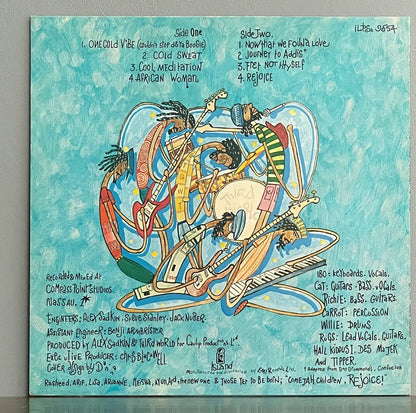 ILPS 9554
Side One
1. ONE COLD VIBE (Couldn't Stop dis ya Boogie)
2. COLD SWEAT
3. COOL MEDITATION
4. AFRICAN WOMAN
Side Two.
1. Now that we Found Love
2. Journey to Addis+
3. Fret Not Thyself
4. REJOICE
THIRD WORLD
RECORDED & MIXED AT
COMPASS POINT STUDIOS.
NASSAU.
ENGINEERS: ALEX SADKIN. STEVE STANLEY. JACK NUBER
ASSISTANT ENGINEER: BENJI ARMBRISTER
PRODUCED BY ALEX SADKIN & THIRD WORLD FOR
EXECUTIVE PRODUCER: CHRIS BLACKWELL
COVER DESIGN BY
Island
MANUFACTURED
Rasheed. Arif, LISA, ARIANNE, NEISHA,
& THOSE YET TO BE BORN; "COME JAH CHILDREN, REJOICE!"
IBO: KEYBOARDS. VOCALS.
CAT: GUITARS - BASS. VOCALS.
RICHIE: BASS. GUITARS.
CARROT: PERCUSSION
WILLIE: DRUMS
RUGS: LEAD VOCALS. GUITARS.
AND TIPPER.
+ Adapted from Don Drummonds,